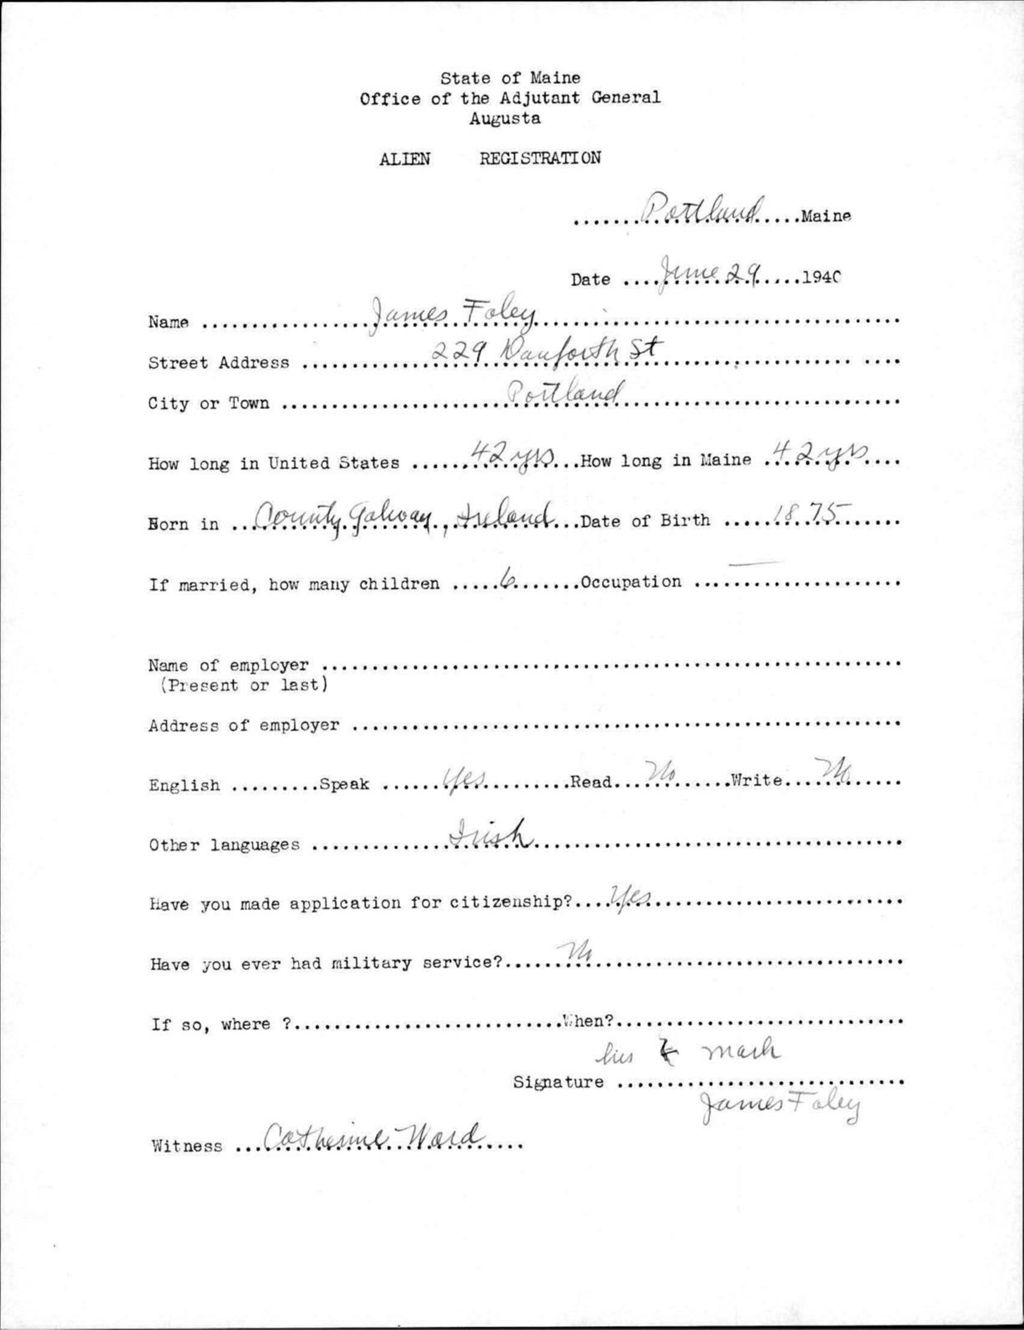 State of Maine
Office of the Adjutant General
Augusta
ALIEN REGISTRATION
.......Portland.....Maine
Date ....June 29.....1940
Name .................James Foley....................................
Street Address .............229 Danforth St........................ ....
City or Town ......................Portland............................
How long in United States ......42 yrs...How long in Maine .42 yrs....
Born in ..County Galway, Ireland...Date of Birth .....1875.......
If married, how many children .....6.......Occupation ...—..................
Name of employer ..........................................................
(Present or last)
Address of employer .......................................................
English .........Speak ......Yes.........Read....No......Write....No......
Other languages ..............Irish.....................................
Have you made application for citizenship?....Yes.........................
Have you ever had military service?......No...............................
If so, where ?...........................When?.............................
his X mark
Signature .............................
James Foley
Witness ...Catherine Ward....